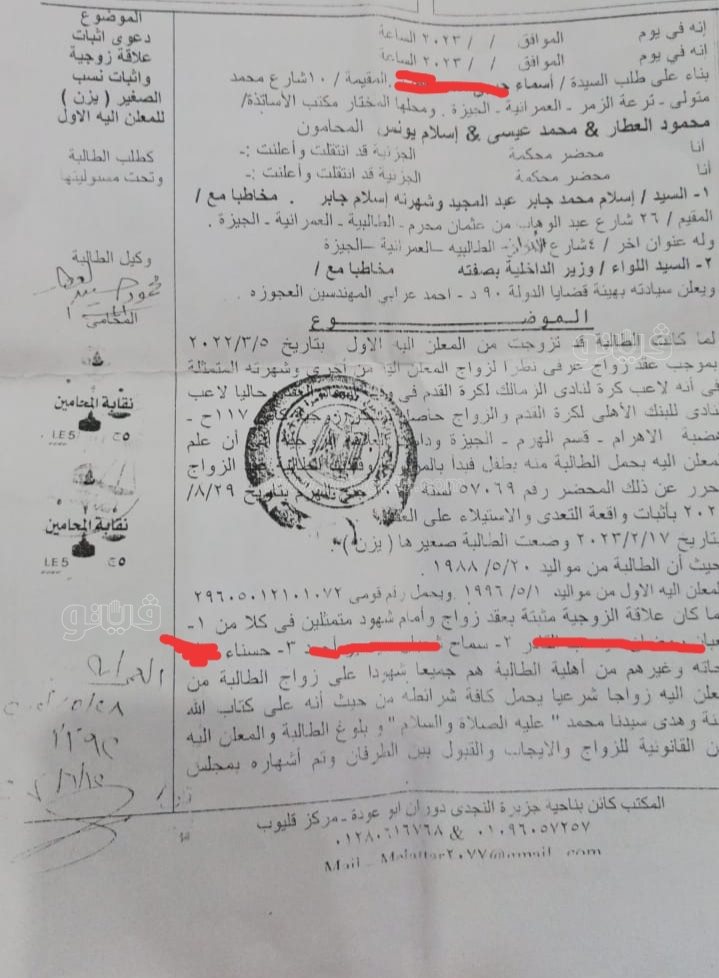 الموضوع
دعوى اثبات
علاقة زوجية
واثبات نسب
الصغير ( يزن )
للمعلن اليه الاول
كطلب الطالبة
وتحت مسئوليتها
وكيل الطالبة
المحامي
نقابة المحامين
LE5 ج٥
نقابة المحامين
LE5 ج٥
إنه في يوم الموافق / / ٢٠٢٣ الساعة
إنه في يوم الموافق / / ٢٠٢٣ الساعة
بناء على طلب السيدة / أسماء المقيمة / ١٠ شارع محمد
متولى - ترعة الزمر - العمرانية - الجيزة . ومحلها المختار مكتب الأساتذة/
محمود العطار & محمد عيسى & إسلام يونس المحامون
أنا محضر محكمة الجزئية قد انتقلت وأعلنت :-
أنا محضر محكمة الجزئية قد انتقلت وأعلنت :-
١- السيد / إسلام محمد جابر عبد المجيد وشهرته إسلام جابر . مخاطبا مع /
المقيم / ٢٦ شارع عبد الوهاب من عثمان محرم - الطالبية - العمرانية - الجيزة .
وله عنوان اخر / ٤ شارع الطالبيه – العمرانية – الجيزة
٢- السيد اللواء / وزير الداخلية بصفته مخاطبا مع /
ويعلن سيادته بهيئة قضايا الدولة ٩٠ د - احمد عرابي المهندسين العجوزه .
الموضوع
لما كانت الطالبة قد تزوجت من المعلن اليه الاول بتاريخ ٢٠٢٢/٣/٥
بموجب عقد زواج عرفي نظرا لزواج المعلن اليه من أخرى وشهرته المتمثلة
في أنه لاعب كرة لنادى الزمالك لكرة القدم في حاليا لاعب
نادى للبنك الأهلى لكرة القدم والزواج حاصل ١١٧ح -
هضبة الاهرام - قسم الهرم - الجيزة أن علم
لمعلن اليه بحمل الطالبة منه بطفل فبدأ الزواج
حرر عن ذلك المحضر رقم ٥٧٠٦٩ لسنة بتاريخ ٨/٢٩/
بأثبات واقعة التعدى والاستيلاء على
بتاريخ ٢٠٢٣/٢/١٧ وضعت الطالبة صغيرها ( يزن ) .
حيث أن الطالبة من مواليد ٥/٢٠/ ١٩٨٨
المعلن اليه الاول من مواليد ٥/١/ ١٩٩٦ ويحمل رقم قومى ٢٩٦٠٥٠١٢١٠١٠٧٢
ما كان علاقة الزوجية مثبتة بعقد زواج وأمام شهود متمثلين في كلا من ١-
٢- سماح ٣- حسناء
وغيرهم من أهلية الطالبة هم جميعا شهودا على زواج الطالبة من
معلن اليه زواجا شرعيا يحمل كافة شرائطه من حيث أنه على كتاب الله
وهدى سيدنا محمد " عليه الصلاة والسلام " و بلوغ الطالبة والمعلن اليه
القانونية للزواج والايجاب والقبول بين الطرفان وتم أشهاره بمجلس
المكتب كائن بناحية جزيرة النجدى دوران ابو عودة - مركز قليوب
٠١٠٩٦٠٥٧٢٥٧ & ٠١٢٨٠٦١٦٧٦٨
ڤيتو
ڤيتو